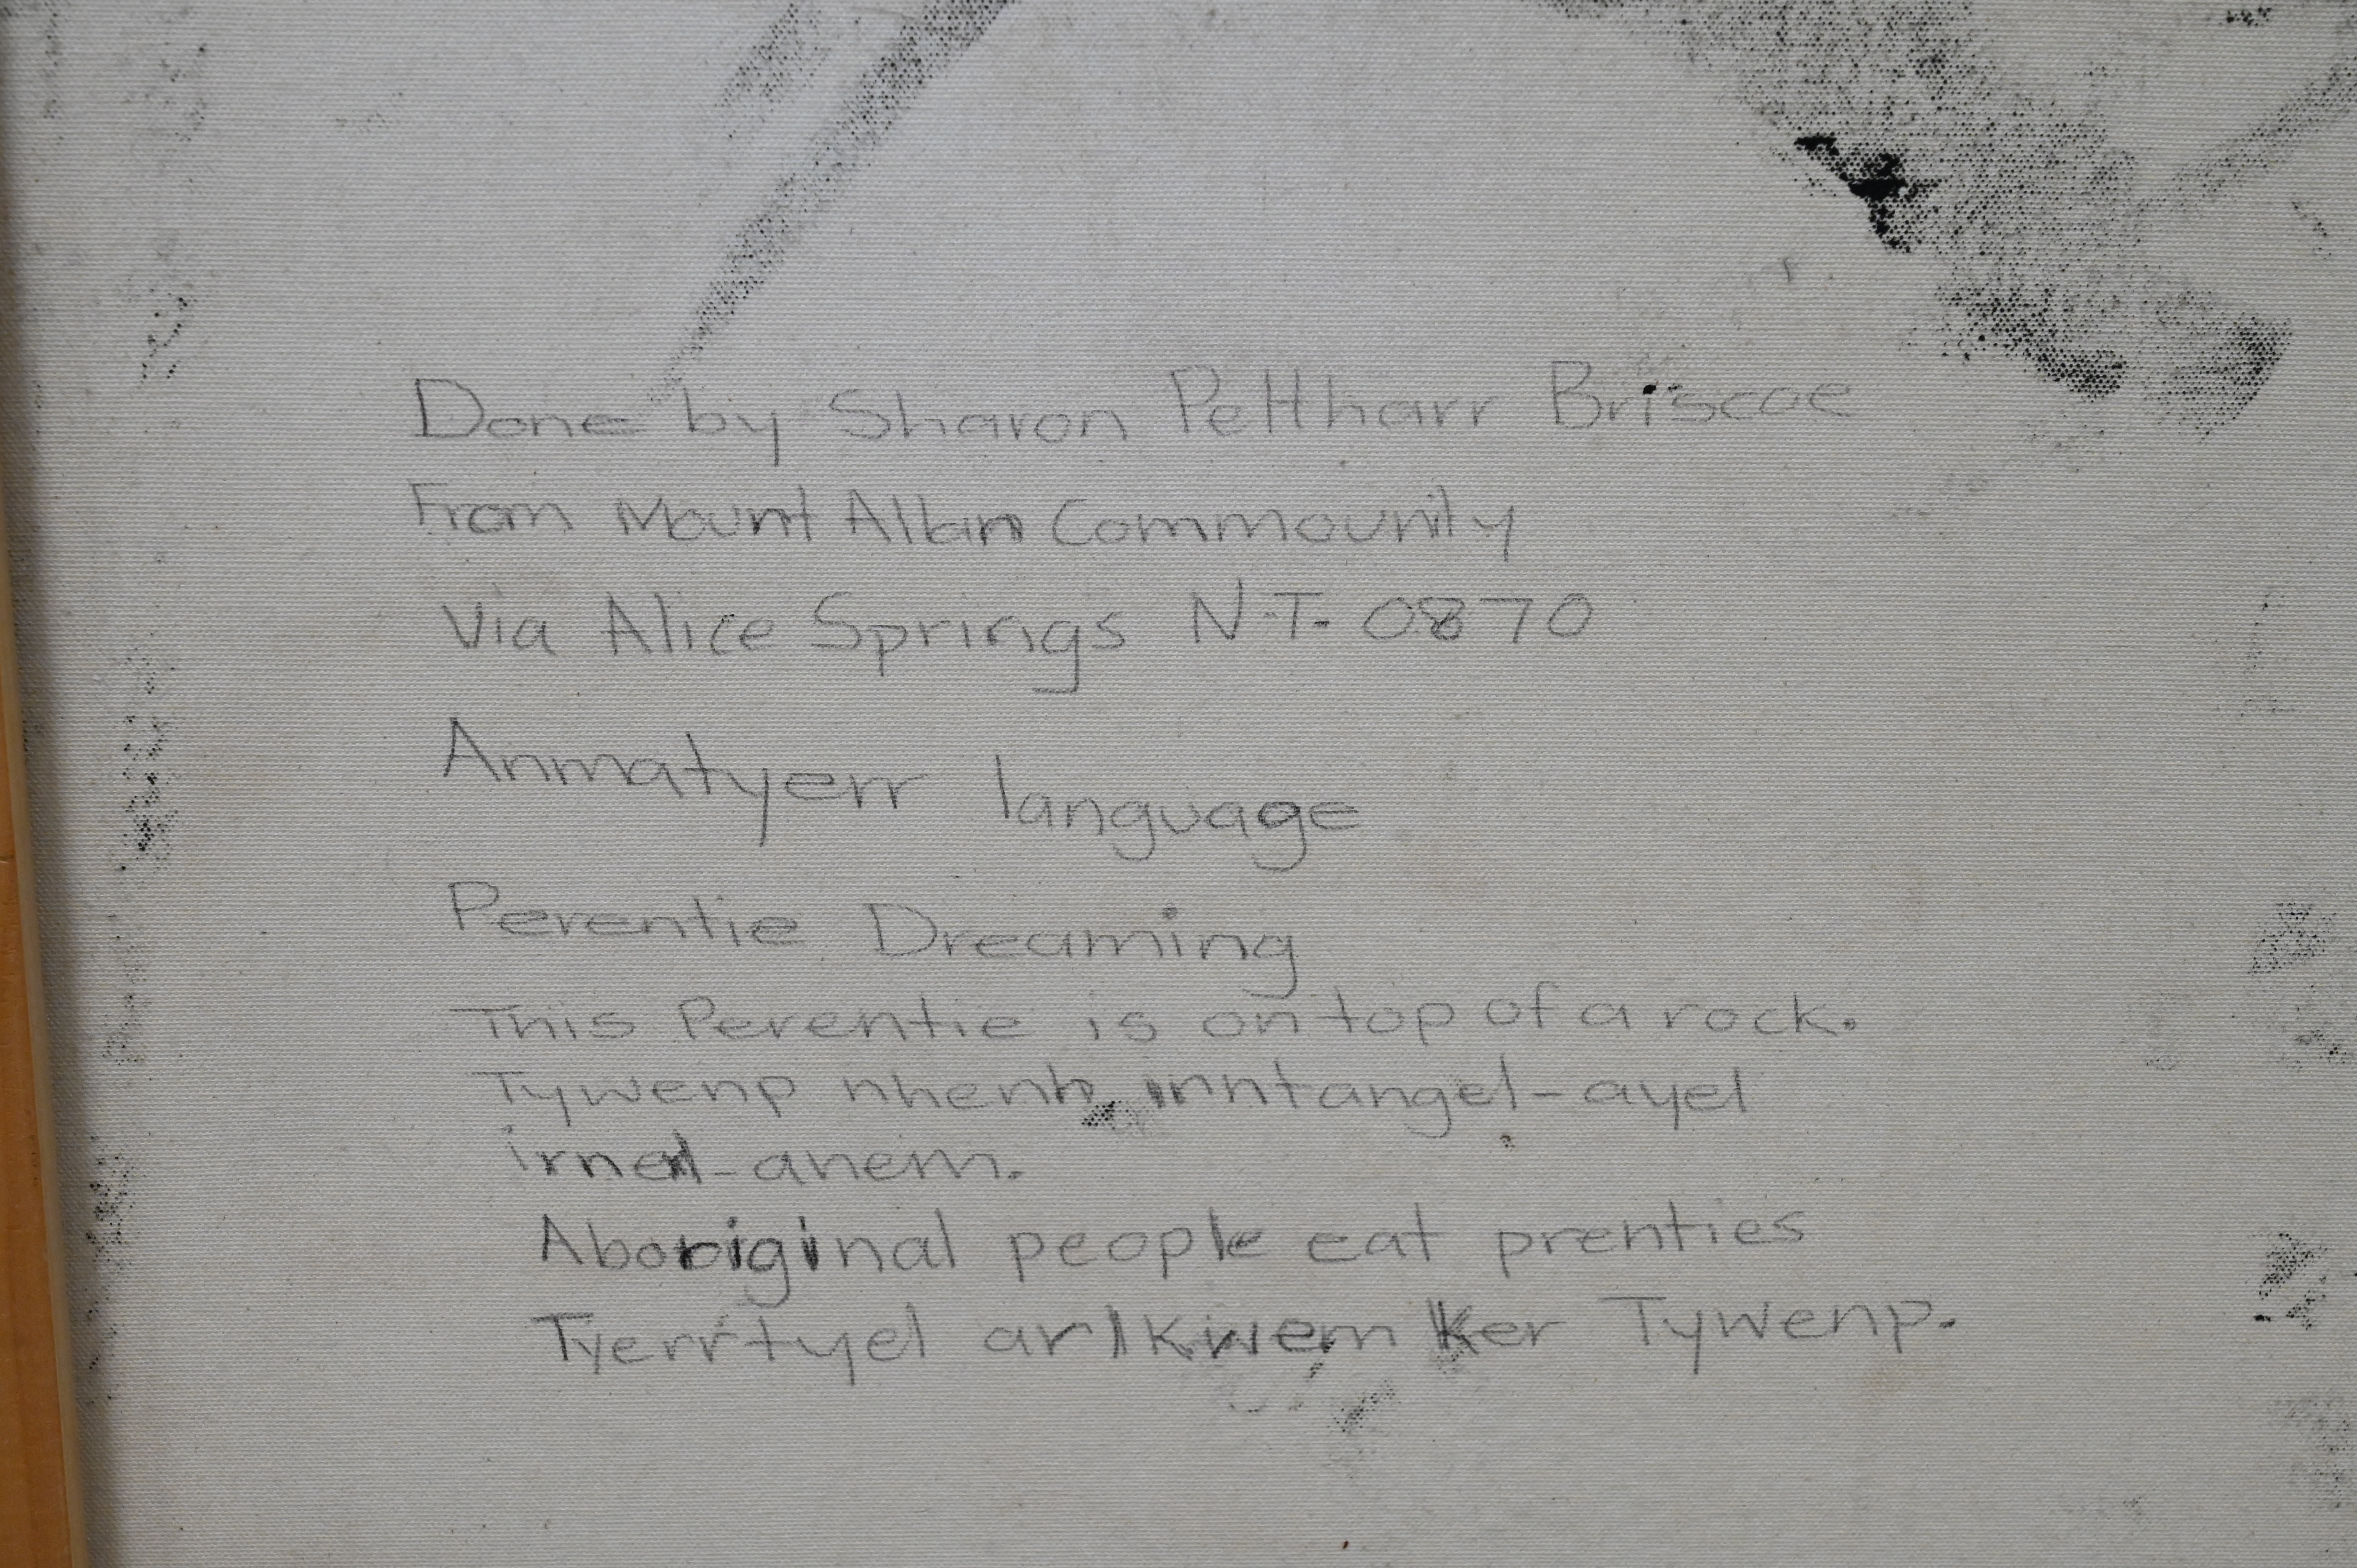 Done by Sharon Peltharr Briscoe
From Mount Allan Commounity
Via Alice Springs N.T. 0870
Anmatyerr language
Perentie Dreaming
This Perentie is on top of a rock.
Tywenp nhenh inntangel-ayel
irnel-anem.
Aboriginal people eat prenties
Tyerrtyel arlkwem ker Tywenp.